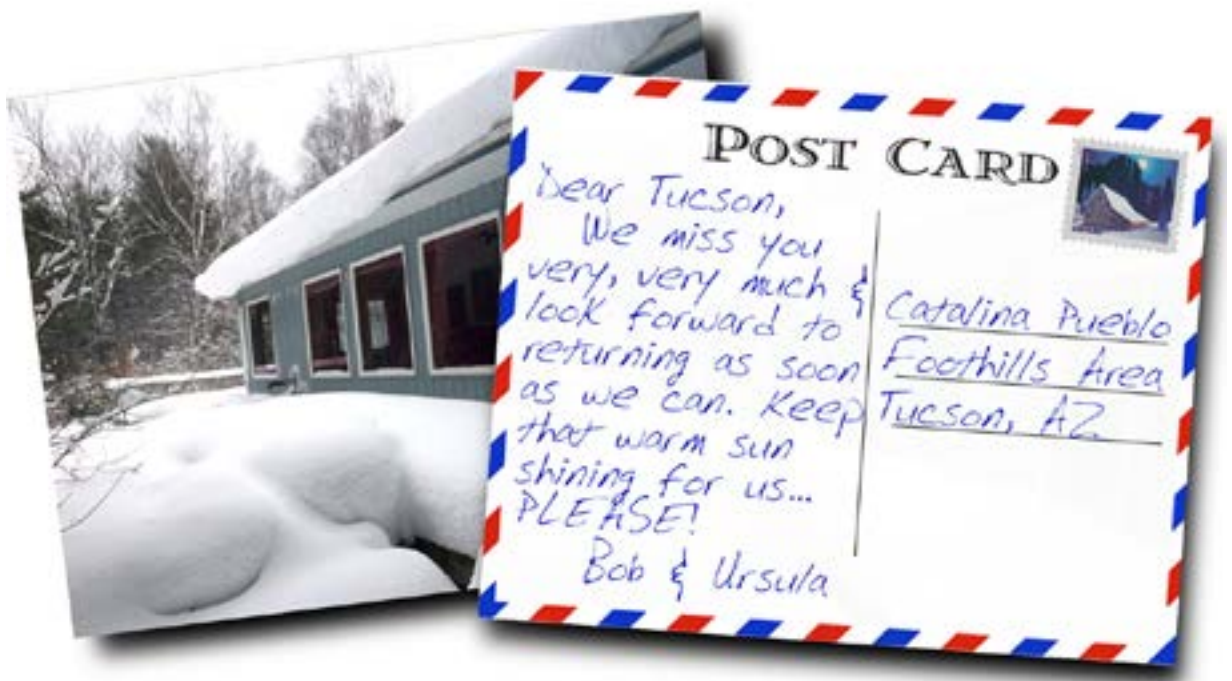 POST CARD
Dear Tucson,
We miss you
very, very much &
look forward to
returning as soon
as we can. Keep
that warm sun
shining for us...
PLEASE!
Bob & Ursula
Catalina Pueblo
Foothills Area
Tucson, AZ